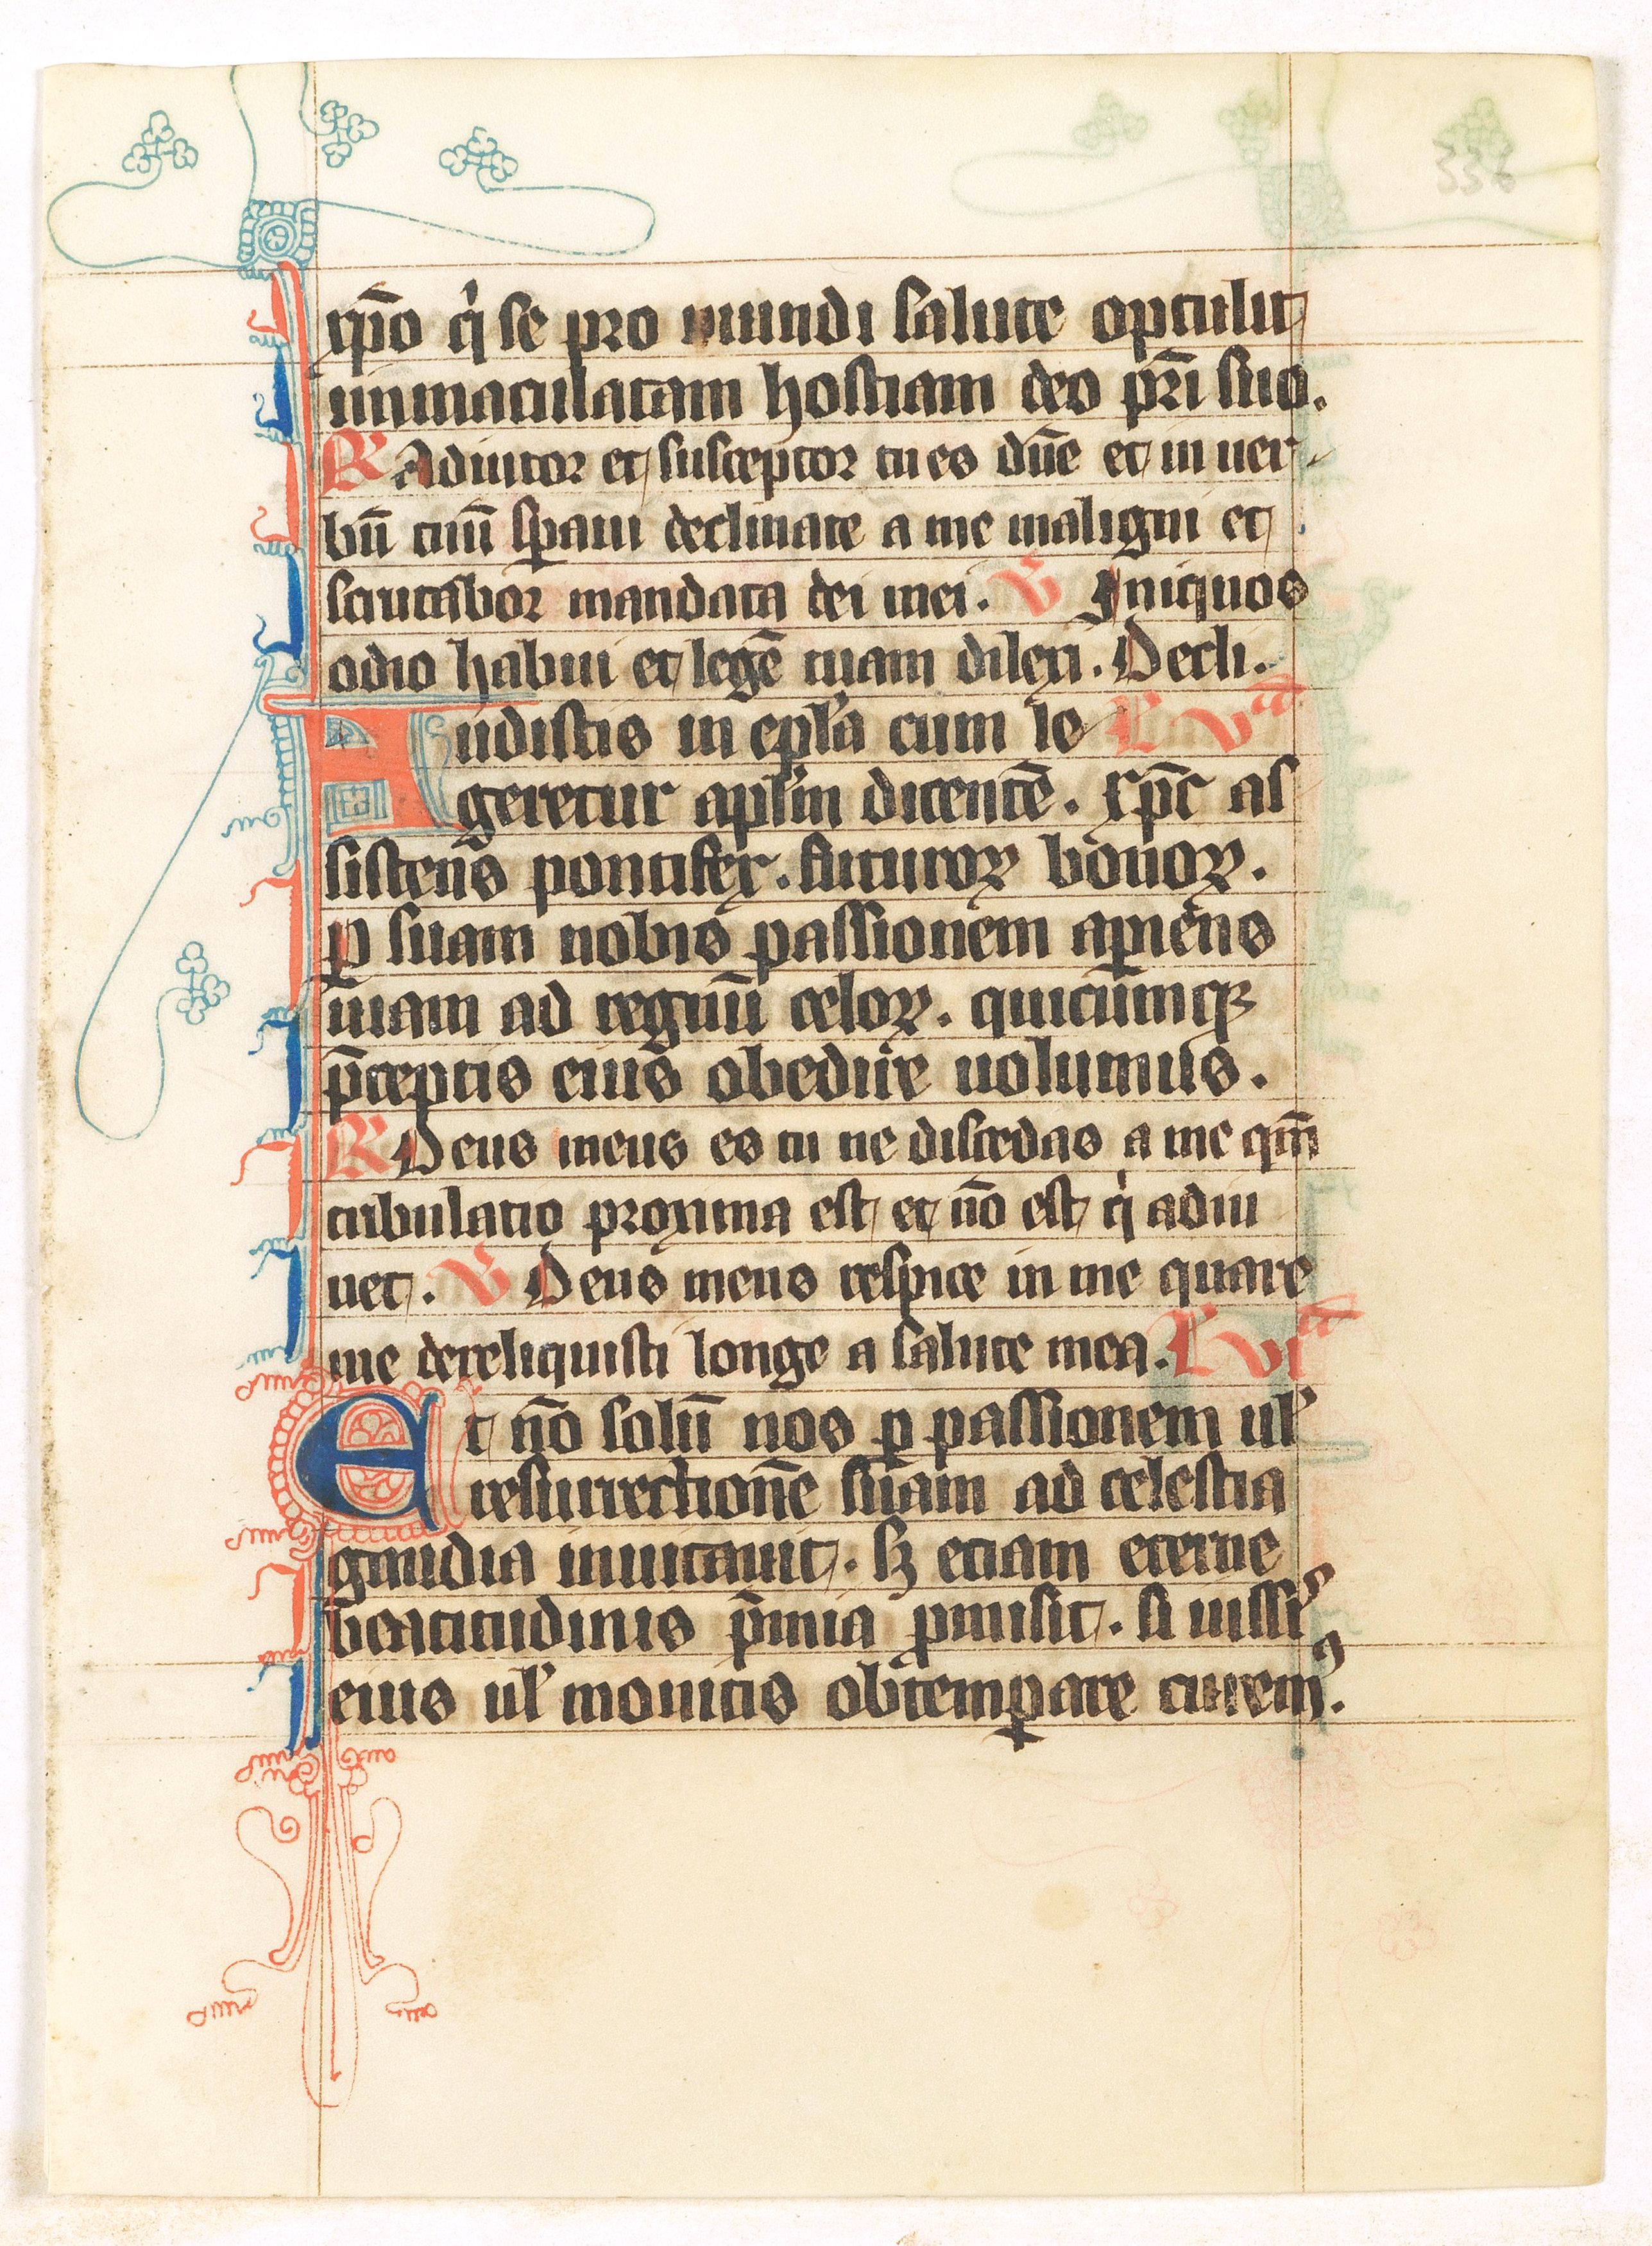 336
xp̄o qͥ se pro mundi salute optulit
immaculatam hostiam deo pr̄i suo.
R Adiutor et susceptor tu es dn̄e et in uer
bū tuū sꝑaui declinate a me maligni et
scrutabor mandata dei mei. V Iniquos
odio habui et legē tuam dilexi. Decli.
Audistis in epl̄a cum le L va
geretur apl̄m dicentē. xp̄c as
sistens pontifex. futuroꝝ bonoꝝ.
ꝑ suam nobis passionem aꝑiens
uiam ad regnū celoꝝ. quicumqꝫ
p̄ceptis eius obedire uolumus.
R Deus meus es tu ne discedas a me qm̄
tribulatio proxima est et nō est qͥ adiu
uet. V Deus meus respice in me quare
me dereliquisti longe a salute mea. L via
Et nō solū nos ꝑ passionem ul̉
resurrectionē suam ad celestia
gaudia inuitauit. sꝫ etiam eterne
beatitudinis p̄mia ꝓmisit. si iussiꝰ
eius ul̉ monitis obtemꝑare curemꝰ.